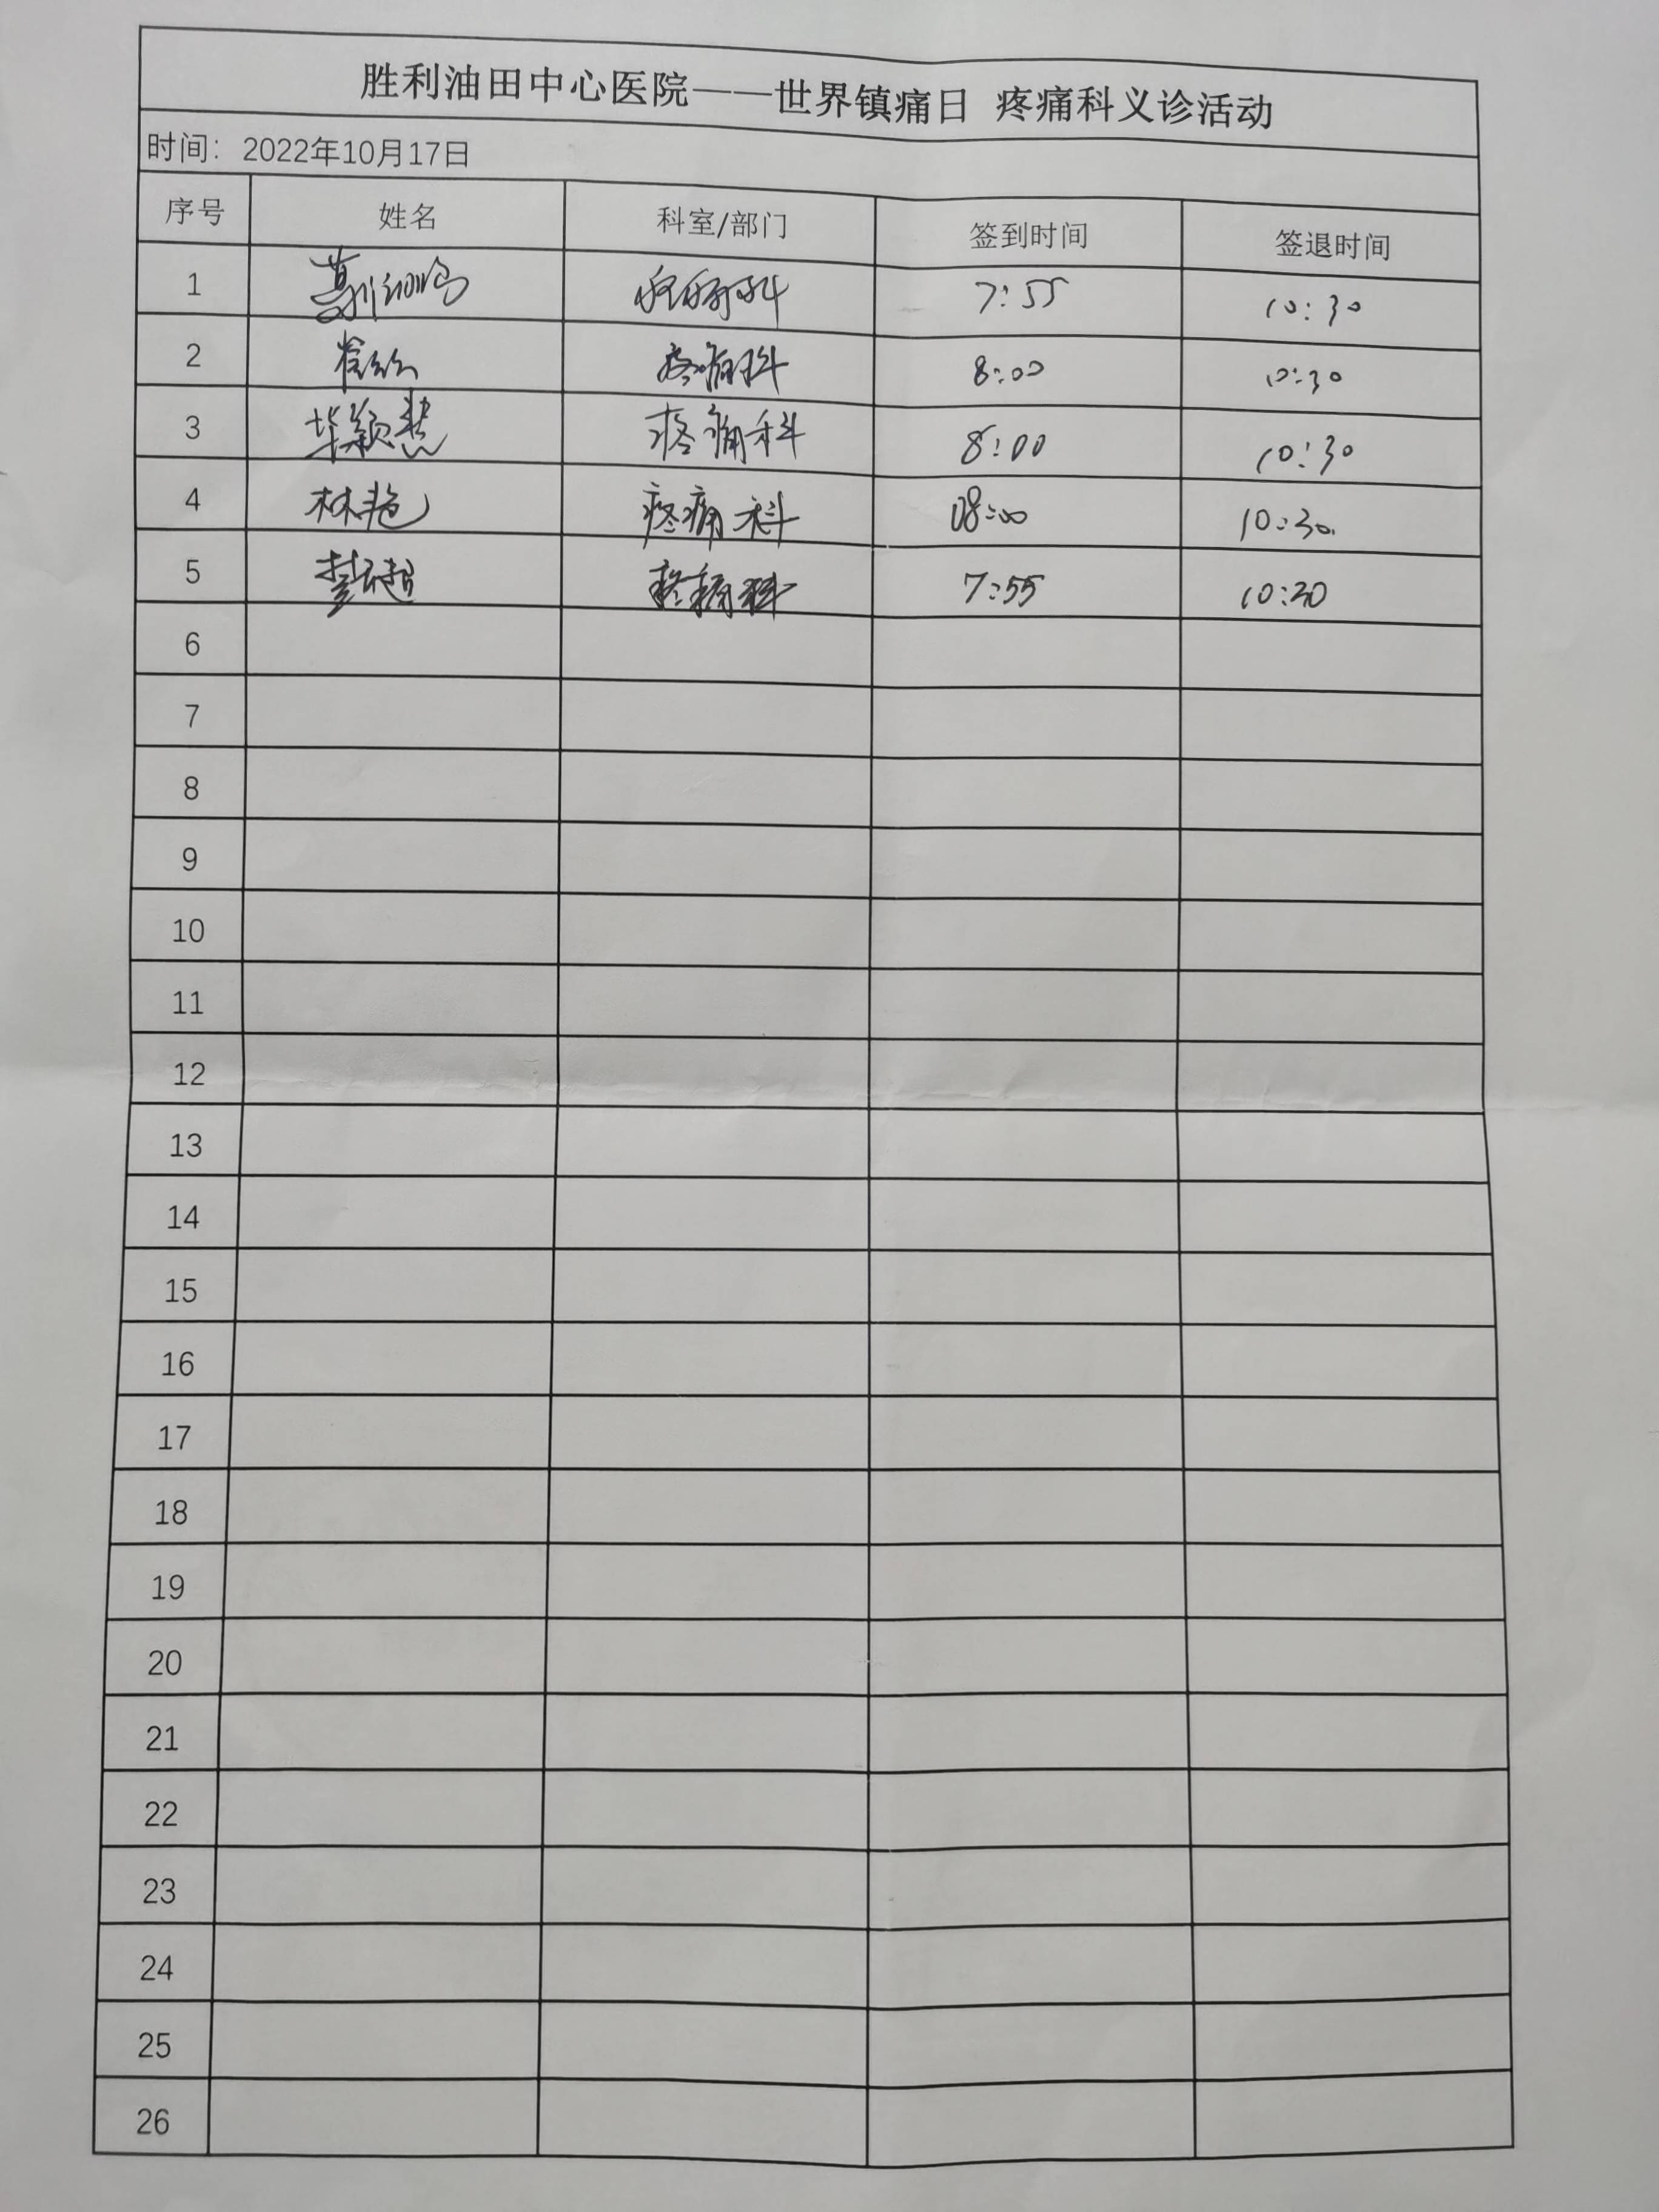 胜利油田中心医院——世界镇痛日 疼痛科义诊活动
时间：2022年10月17日
序号 姓名 科室/部门 签到时间 签退时间
1 疼痛科 7:55 10:30
2 疼痛科 8:00 10:30
3 毕颖慧 疼痛科 8:00 10:30
4 林艳 疼痛科 08:00 10:30
5 疼痛科 7:55 10:30
6
7
8
9
10
11
12
13
14
15
16
17
18
19
20
21
22
23
24
25
26